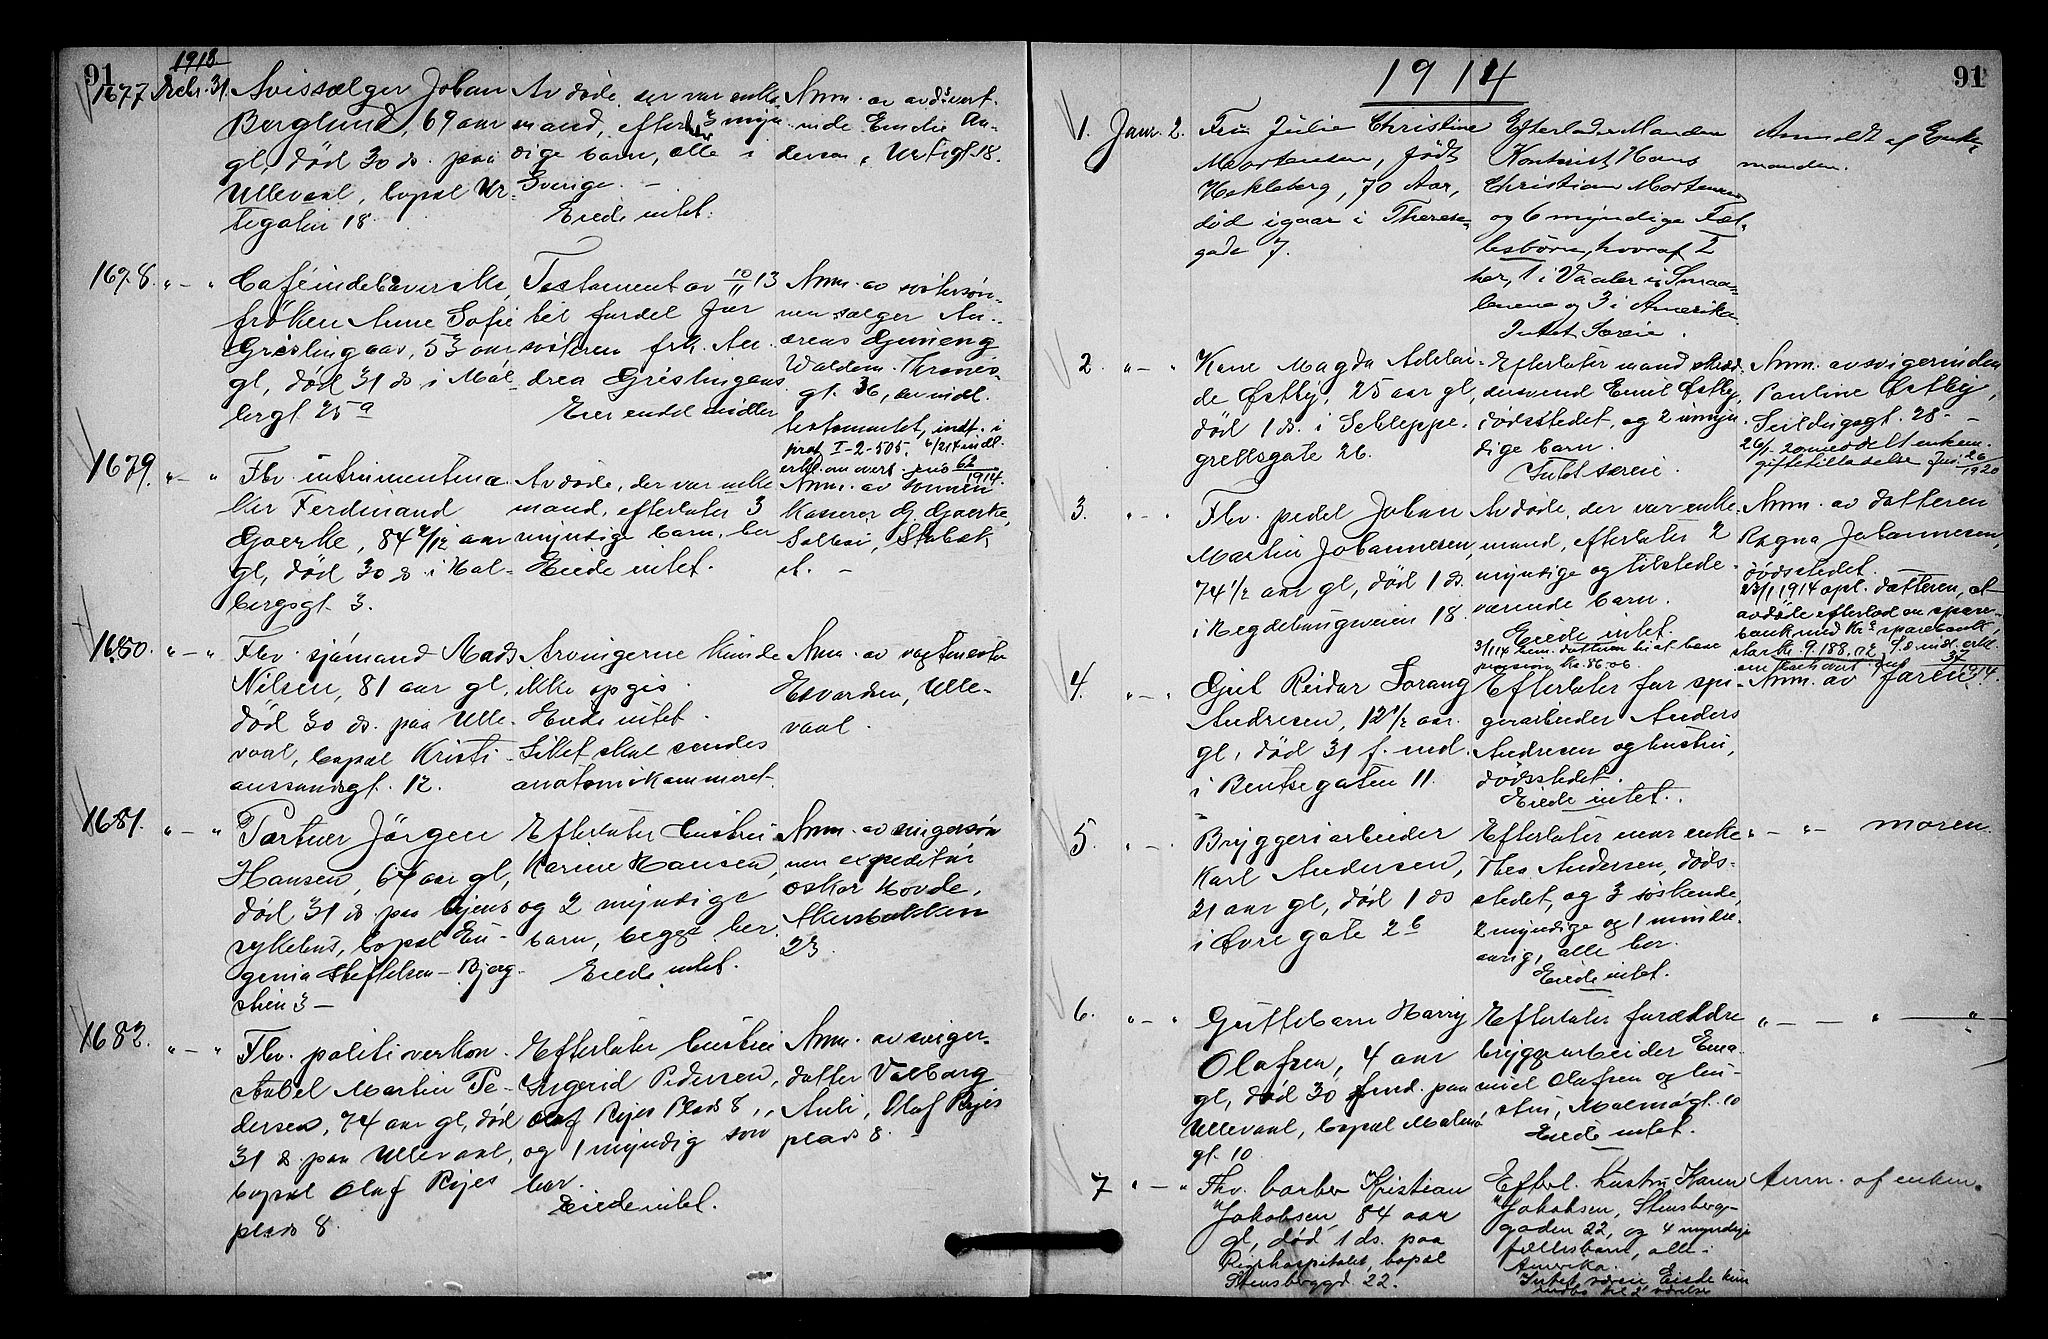 91
1913
1677 Decbr. 31.
Avissælger Johan
Berglund, 69 aar
gl, død 30 ds. paa
Ullevaal, bopæl Ur-
tegaten 18
Avdøde, der var enke-
mand, efterl. 3 myn-
dige barn, alle i
Sverige. –
Eiede intet.
Anm. av avd's vert-
inde Emelie An-
derson, Urtegt. 18.
1678. " – "
Caféindehaverske,
frøken Anne Sofie
Gristingaas, 53 aar
gl, død 31 ds i Møl-
lergt 25 a
Testament av 10/11 13
til fordel for
søsteren frk. An-
drea Gristingaas
Eier endel midler
Anm. av søstersøn-
nen sælger An-
dreas Gjeneng
Waldem. Thranes-
gt. 36, der indl.
testamentet, indf. i
prot I-2-505. 6/2 14 indl.
erkl. om overt. jns 62/1914.
1679. " – "
Fhv. instrumentma-
ker Ferdinand
Goerke, 84 4/12 aar
gl, død 30 ds i Hol-
bergsgt. 3.
Avdøde, der var enke-
mand, efterlater 3
myndige barn, her
Eiede intet.
Anm. av sønnen
Kasserer G. Goerke,
Solbai, Stabæk
st. –
1680. " – "
Fhv. sjømand Mads
Nilsen, 81 aar gl,
død 30 ds. paa Ulle-
vaal, bopæl Kristi-
anssandsgt. 12.
Arvingerne kunde
ikke opgis.
Eiede intet.
Liket skal sendes
anatomikammeret.
Anm. av vagtmester
Edvardsen, Ulle-
vaal.
1681. " – "
Portner Jørgen
Hansen, 64 aar gl,
død 31 ds paa Diens
sykehus, bopæl Eu-
genia Stiftelsen – Bjerg-
stien 3 –
Efterlater hustru
Karine Hansen,
og 2 myndige
barn, begge her.
Eiede intet.
Anm. av svigersøn
nen expeditør
Oskar Hovde,
Akersbakken
23
1682. " – "
Fhv. politioverkon-
stabel Martin Pe-
dersen, 74 aar gl, død
31 ds. paa Ullevaal,
bopæl Olaf Ryes
plads 8.
Efterlater hustru
Ingerid Pedersen,
Olaf Ryes Plads 8,
og 1 myndig søn
her.
Eiede intet.
Anm. av sviger-
datter Valborg
Auli, Olaf Ryes
plads 8. –
91
1914
1. Janr. 2.
Fru Julie Christine
Mortensen, født
Hakleberg, 70 Aar,
død igaar i Therese-
gade 7.
Efterlader Manden
Kontorist Hans
Christian Mortensen
og 6 myndige Fæl-
lesbørn, hvoraf 2
her, 1 i Vaaler i Smaa-
lenene og 3 i Amerika.
Intet Særeie.
Anmeldt af Enke-
manden.
2. " – "
Kone Magda Adelai-
de Østby, 25 aar gl,
død 1 ds. i Schleppe-
grellsgate 26.
Efterlater mand skræd-
dersvend Emil Østby,
dødsstedet, og 2 umyn-
dige barn.
Intet særeie.
Anm. av svigerinden
Pauline Østby,
Seildugsgt. 28 –
26/1 20 meddelt enkem.
giftetilladelse Jns 26/1920
3. " – "
Fhv. pedel Johan
Martin Johannesen,
74 1/2 aar gl, død 1 ds.
i Hegdehaugsveien 18.
Avdøde, der var enke-
mand, efterlater 2
myndige og tilstede-
værende barn.
Eiede intet.
3/1 14 anm. datteren til at have
pension kr. 86.06.
Anm. av datteren
Ragna Johannesen,
dødsstedet.
23/1 1914 opl. datteren, at
avdøde efterlod en spare-
bank med Kr.s sparebank,
stor kr. 9.188,02, s.d. indl. erkl.
om boets overt. jns 37/1914.
4. " – "
Gut Reidar Sorang
Andresen, 12 1/2 aar.
gl, død 31 f. md.
i Bentsegaten 11.
Efterlater far spi-
gerarbeider Anders
Andresen og hustru,
dødsstedet.
Eiede intet.
Anm. av faren
5. " – "
Bryggeriarbeider
Karl Andersen,
21 aar gl, død 1 ds
i Øvre gate 2 b
Efterlater mor enke
Thea Andersen, døds-
stedet, og 3 søskende,
2 myndige og 1 mindre-
aarig, alle her.
Eiede intet.
" – " – moren.
6. " – "
Guttebarn Harry
Olafsen, 4 aar
gl, død 30 f.md. paa
Ullevaal, bopæl Malmø-
gt. 10
Efterlater forældre
bryggearbeider Ema-
nuel Olafsen og hu-
stru, Malmøgt. 10
Eiede intet.
" – – " – "
7 " – "
Fhv. barber Kristian
Jakobsen, 84 aar
gl, død 1 ds. paa
Rigshospitalet, bopæl
Stensberggd. 22.
Efterl. hustru Karen
Jakobsen, Stensberg-
gaden 22, og 4 myndige
fællesbarn, alle i
Amerika.
Intet særeie. Eiede kun
indbo til 2 værelser
Anm. af enken.